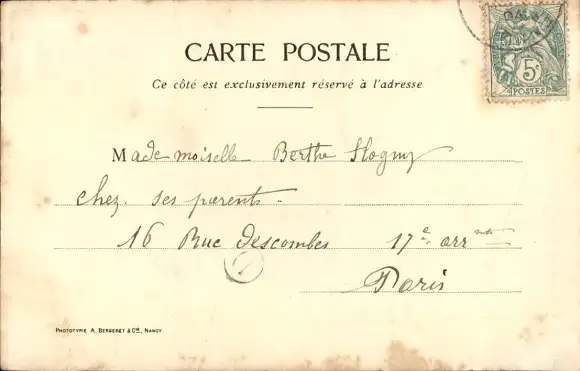 CARTE POSTALE
Ce côté est exclusivement réservé à l'adresse
5c
POSTES
Mademoiselle Berthe
chez ses parents -
16 Rue Descombes 17e arrt
Paris
PHOTOTYPIE A. BERGERET & Cie, NANCY